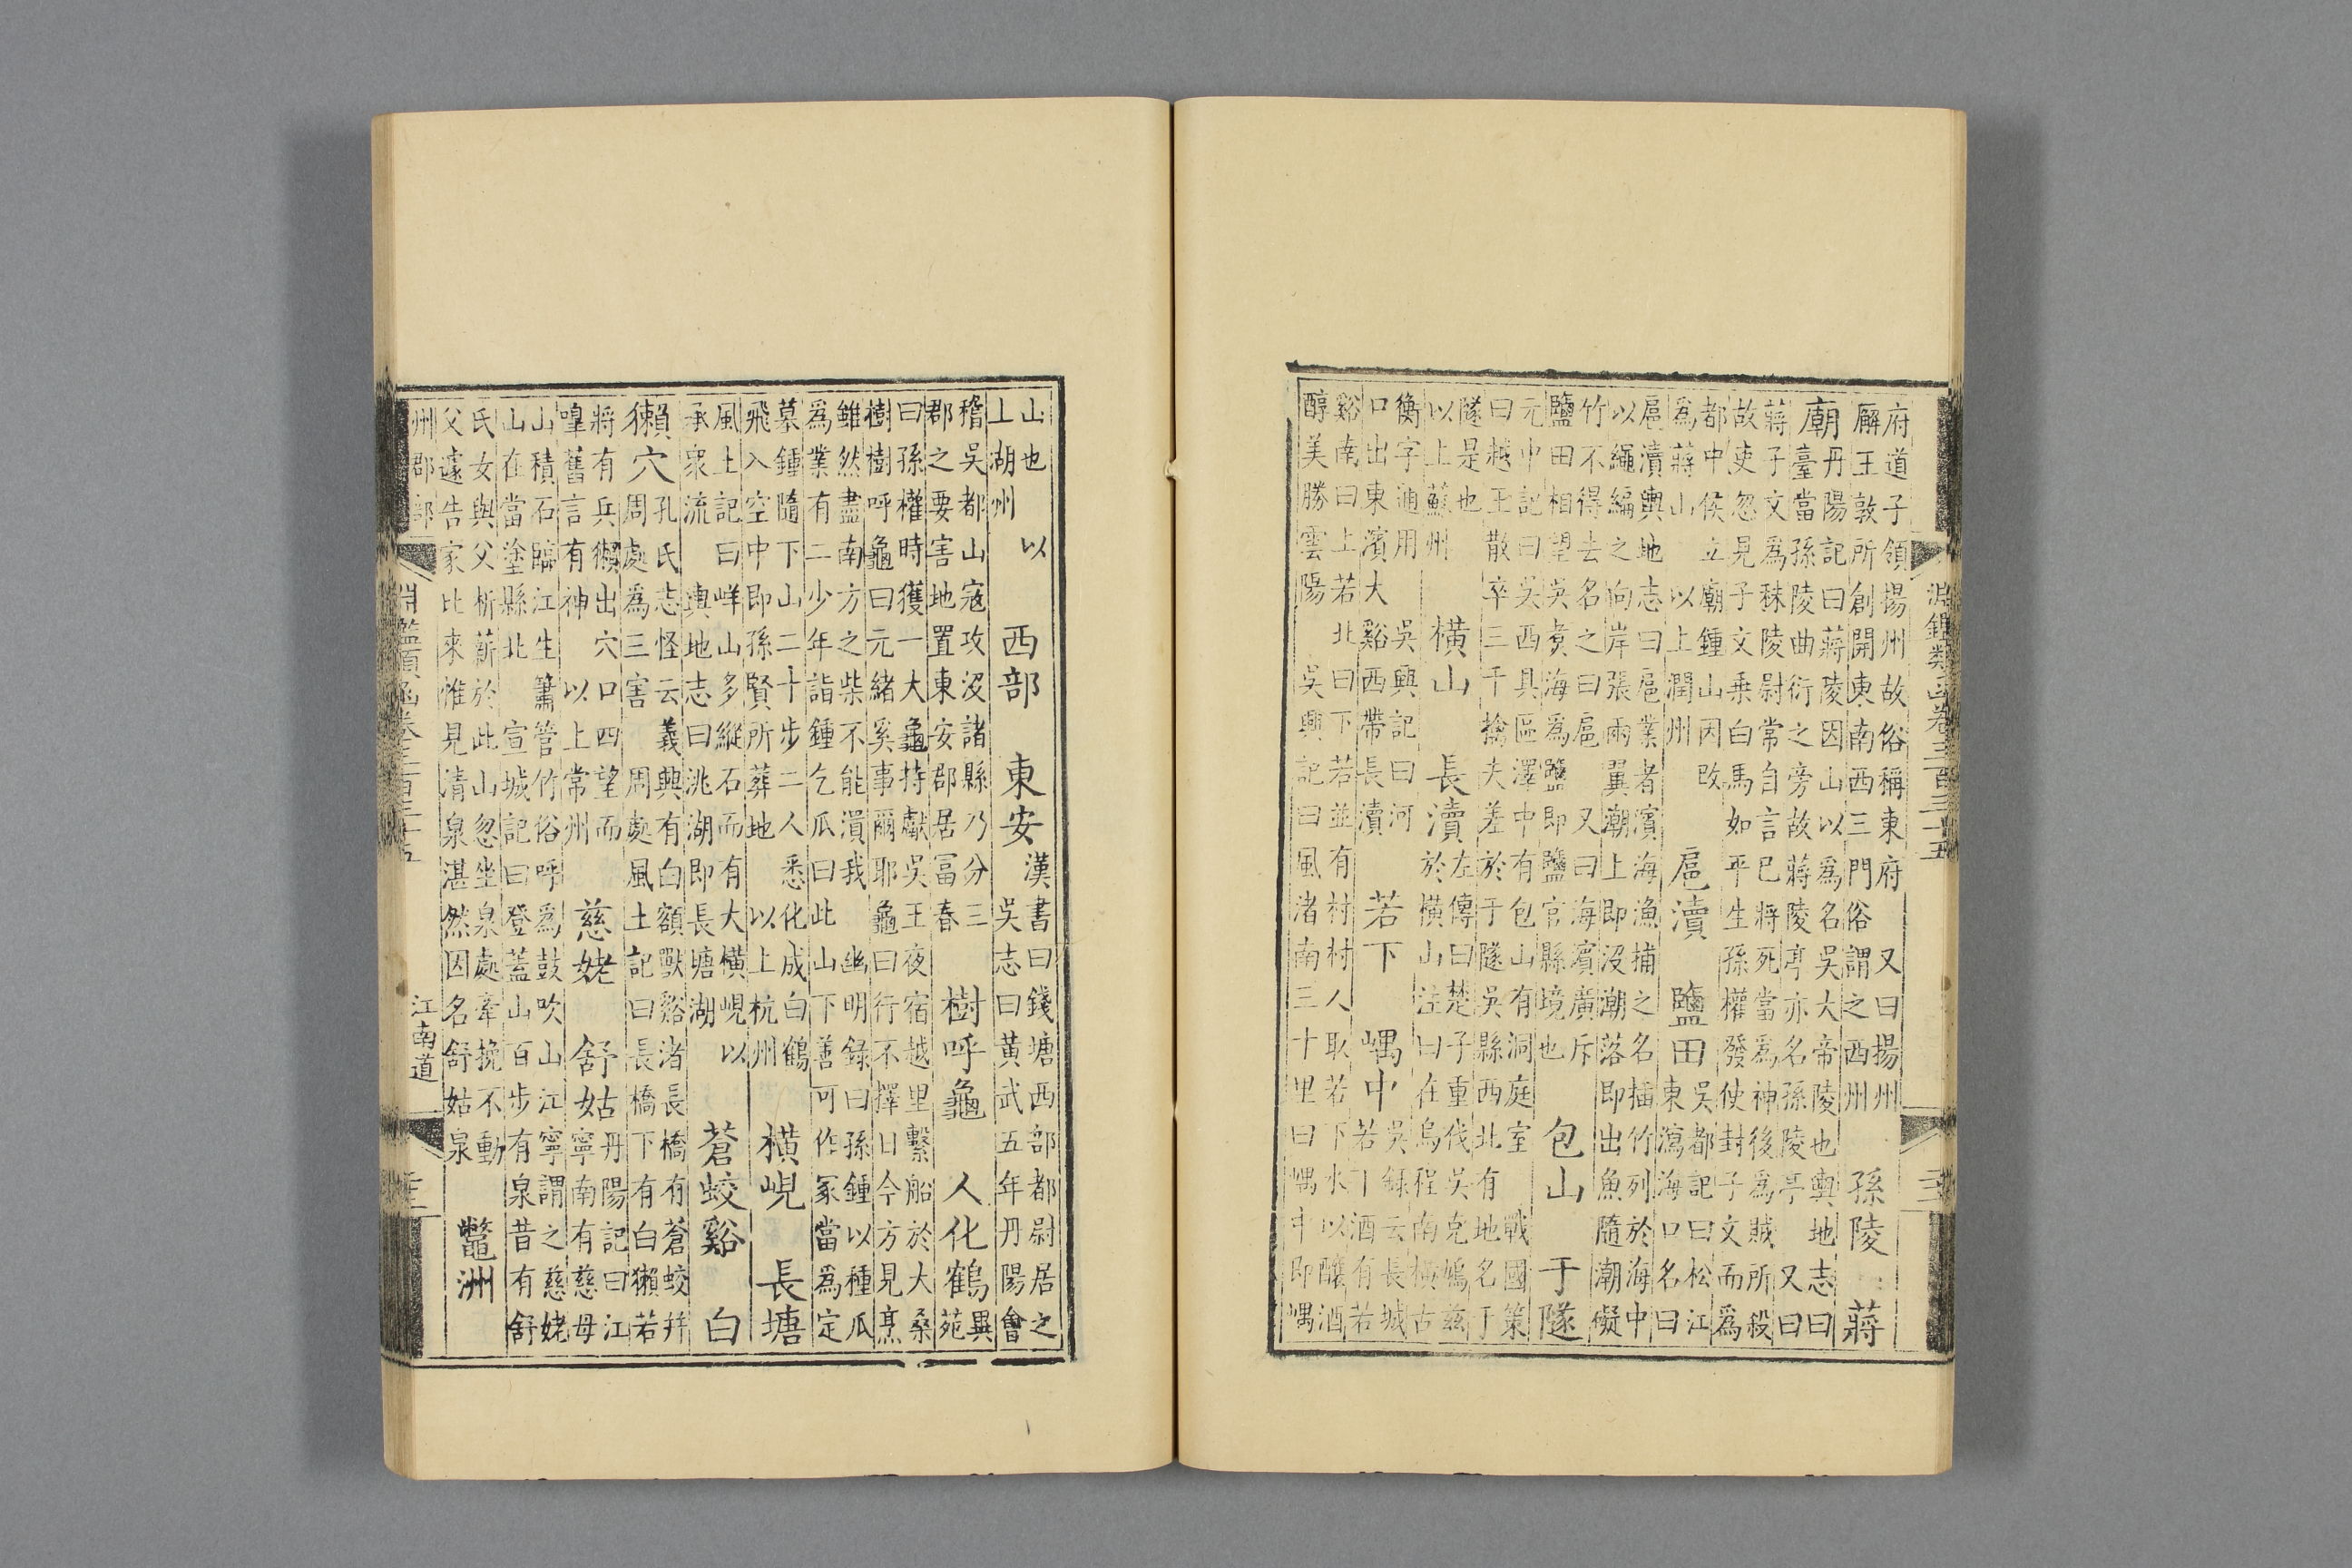 淵鑑類函卷三百三十五
府道子領揚州故俗稱東府 又曰揚州
廨王敦所創開東南西三門俗謂之西州
孫陵 蔣
廟
丹陽記曰蔣陵因山以為名吳大帝陵也輿地志曰
臺當孫陵曲衍之旁故蔣陵亭亦名孫陵亭 又曰
蔣子文為秣陵尉常自言已將死當為神後為賊所殺
故吏忽見子文乗白馬如平生孫權發使封子文而為
都中侯立廟鍾山因改
為蔣山 以上潤州
扈瀆 鹽田
吳都記曰松江
東瀉海口名曰
扈瀆輿地志曰扈業者濱海漁捕之名插竹列於海中
以繩編之向岸張兩翼潮上即沒潮落即出魚隨潮礙
竹不得去名之曰扈 又曰海濱廣斥
鹽田相望吳煑海為鹽即鹽官縣境也
包山 于隧
元中記曰吳西具區澤中有包山山有洞庭室 戰國策
曰越王散卒三千擒夫差於于隧吳縣西北有地名于
隧是也
以上蘇州
橫山 長瀆
左傳曰楚子重伐吳克鳩茲
於橫山注曰在烏程南橫古
衡字通用 吳興記曰河
口出東濱大谿西帶長瀆
若下 嵎中
吳録云長城
若下酒有若
谿南曰上若北曰下若並有村村人取若下水以釀酒
醇美勝雲陽 吳興記曰風渚南三十里曰嵎中即嵎
山也 以
上湖州
西部 東安
漢書曰錢塘西部都尉居之
吳志曰黃武五年丹陽會
稽吳都山宼攻沒諸縣乃分三
郡之要害地置東安郡居冨春
樹呼龜 人化鶴
異
苑
曰孫權時獲一大龜持獻吳王夜宿越里繫船於大桑
樹樹呼龜曰元緒奚事爾耶龜曰行不擇日今方見烹
雖然盡南方之柴不能潰我 幽明録曰孫鍾以種瓜
為業有二少年詣鍾乞瓜曰此山下善可作冢當為定
墓鍾隨下山二十步二人悉化成白鶴
飛入空中即孫賢所葬地 以上杭州
橫峴 長塘
風土記曰山多縱石而有大橫峴以
承衆流 輿地志曰洮湖即長塘湖
蒼蛟谿 白
獺穴
孔氏志怪云義興有白額獸谿渚長橋有蒼蛟并
周處為三害 周處風土記曰長橋下有白獺若
將有兵獺出穴口四望而
嘷舊言有神 以上常州
慈姥 舒姑
丹陽記曰江
寧南有慈母
山積石臨江生簫管竹俗呼為鼓吹山江寧謂之慈姥
山在當塗縣北 宣城記曰登蓋山百步有泉昔有舒
氏女與父析薪於此山忽坐泉處牽挽不動
父遽告家比來惟見清泉湛然因名舒姑泉
鼈洲
州郡部
淵鑑類函卷三百三十五
江南道